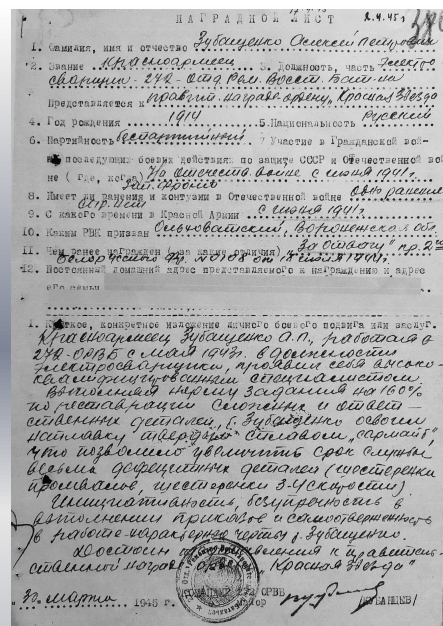 2.4.45г
НАГРАДНОЙ ЛИСТ
1. Фамилия, имя и отчество Зубащенко Алексей Петрович
2. Звание Красноармеец 3. Должность, часть Электро
сварщик - 272 - Отд. Рем. Восст. Бат-на
Представляется к правит. награде ордену "Красная Звезда"
4. Год рождения 1914 5. Национальность Русский
6. Партийность беспартийный 7. Участие в Гражданской вой-
последующих боевых действиях по защите СССР и Отечественной вой
не (где, когда) На отечеств. войне с июня 1941г.
Зап. Фронт
8. Имеет ли ранения и контузии в Отечественной войне одно ранение
9. С какого времени в Красной Армии с июня 1941г.
10. Каким РВК призван Ольховатский, Воронежская обл.
11. Чем ранее награжден (за какие отличия) "За Отвагу" пр. 2го
Белорусского фр.
12. Постоянный домашний адрес представляемого к награждению и адрес
его семьи
1. Краткое, конкретное изложение личного боевого подвига или заслуг.
Красноармеец Зубащенко А.П., работая в
272-ОРВБ с мая 1943г. в должности
электросварщика, проявил себя высоко-
квалифицированным специалистом
Выполняя норму задания на 160%
по реставрации сложных и ответ-
ственных деталей, т. Зубащенко освоил
наплавку твердым сплавом "сормайт",
что позволило увеличить срок службы
весьма дефицитных деталей (шестеренки
промвалов, шестеренки 3-4 скорости)
Инициативность, безупречность в
выполнении приказов и самоотверженность
в работе - характерные черты т. Зубащенко.
Достоин представления к правитель-
ственной награде ордену "Красная Звезда"
КОМАНДИР 272 ОРВБ
30 марта 1945 г. майор /КУБАНЦЕВ/